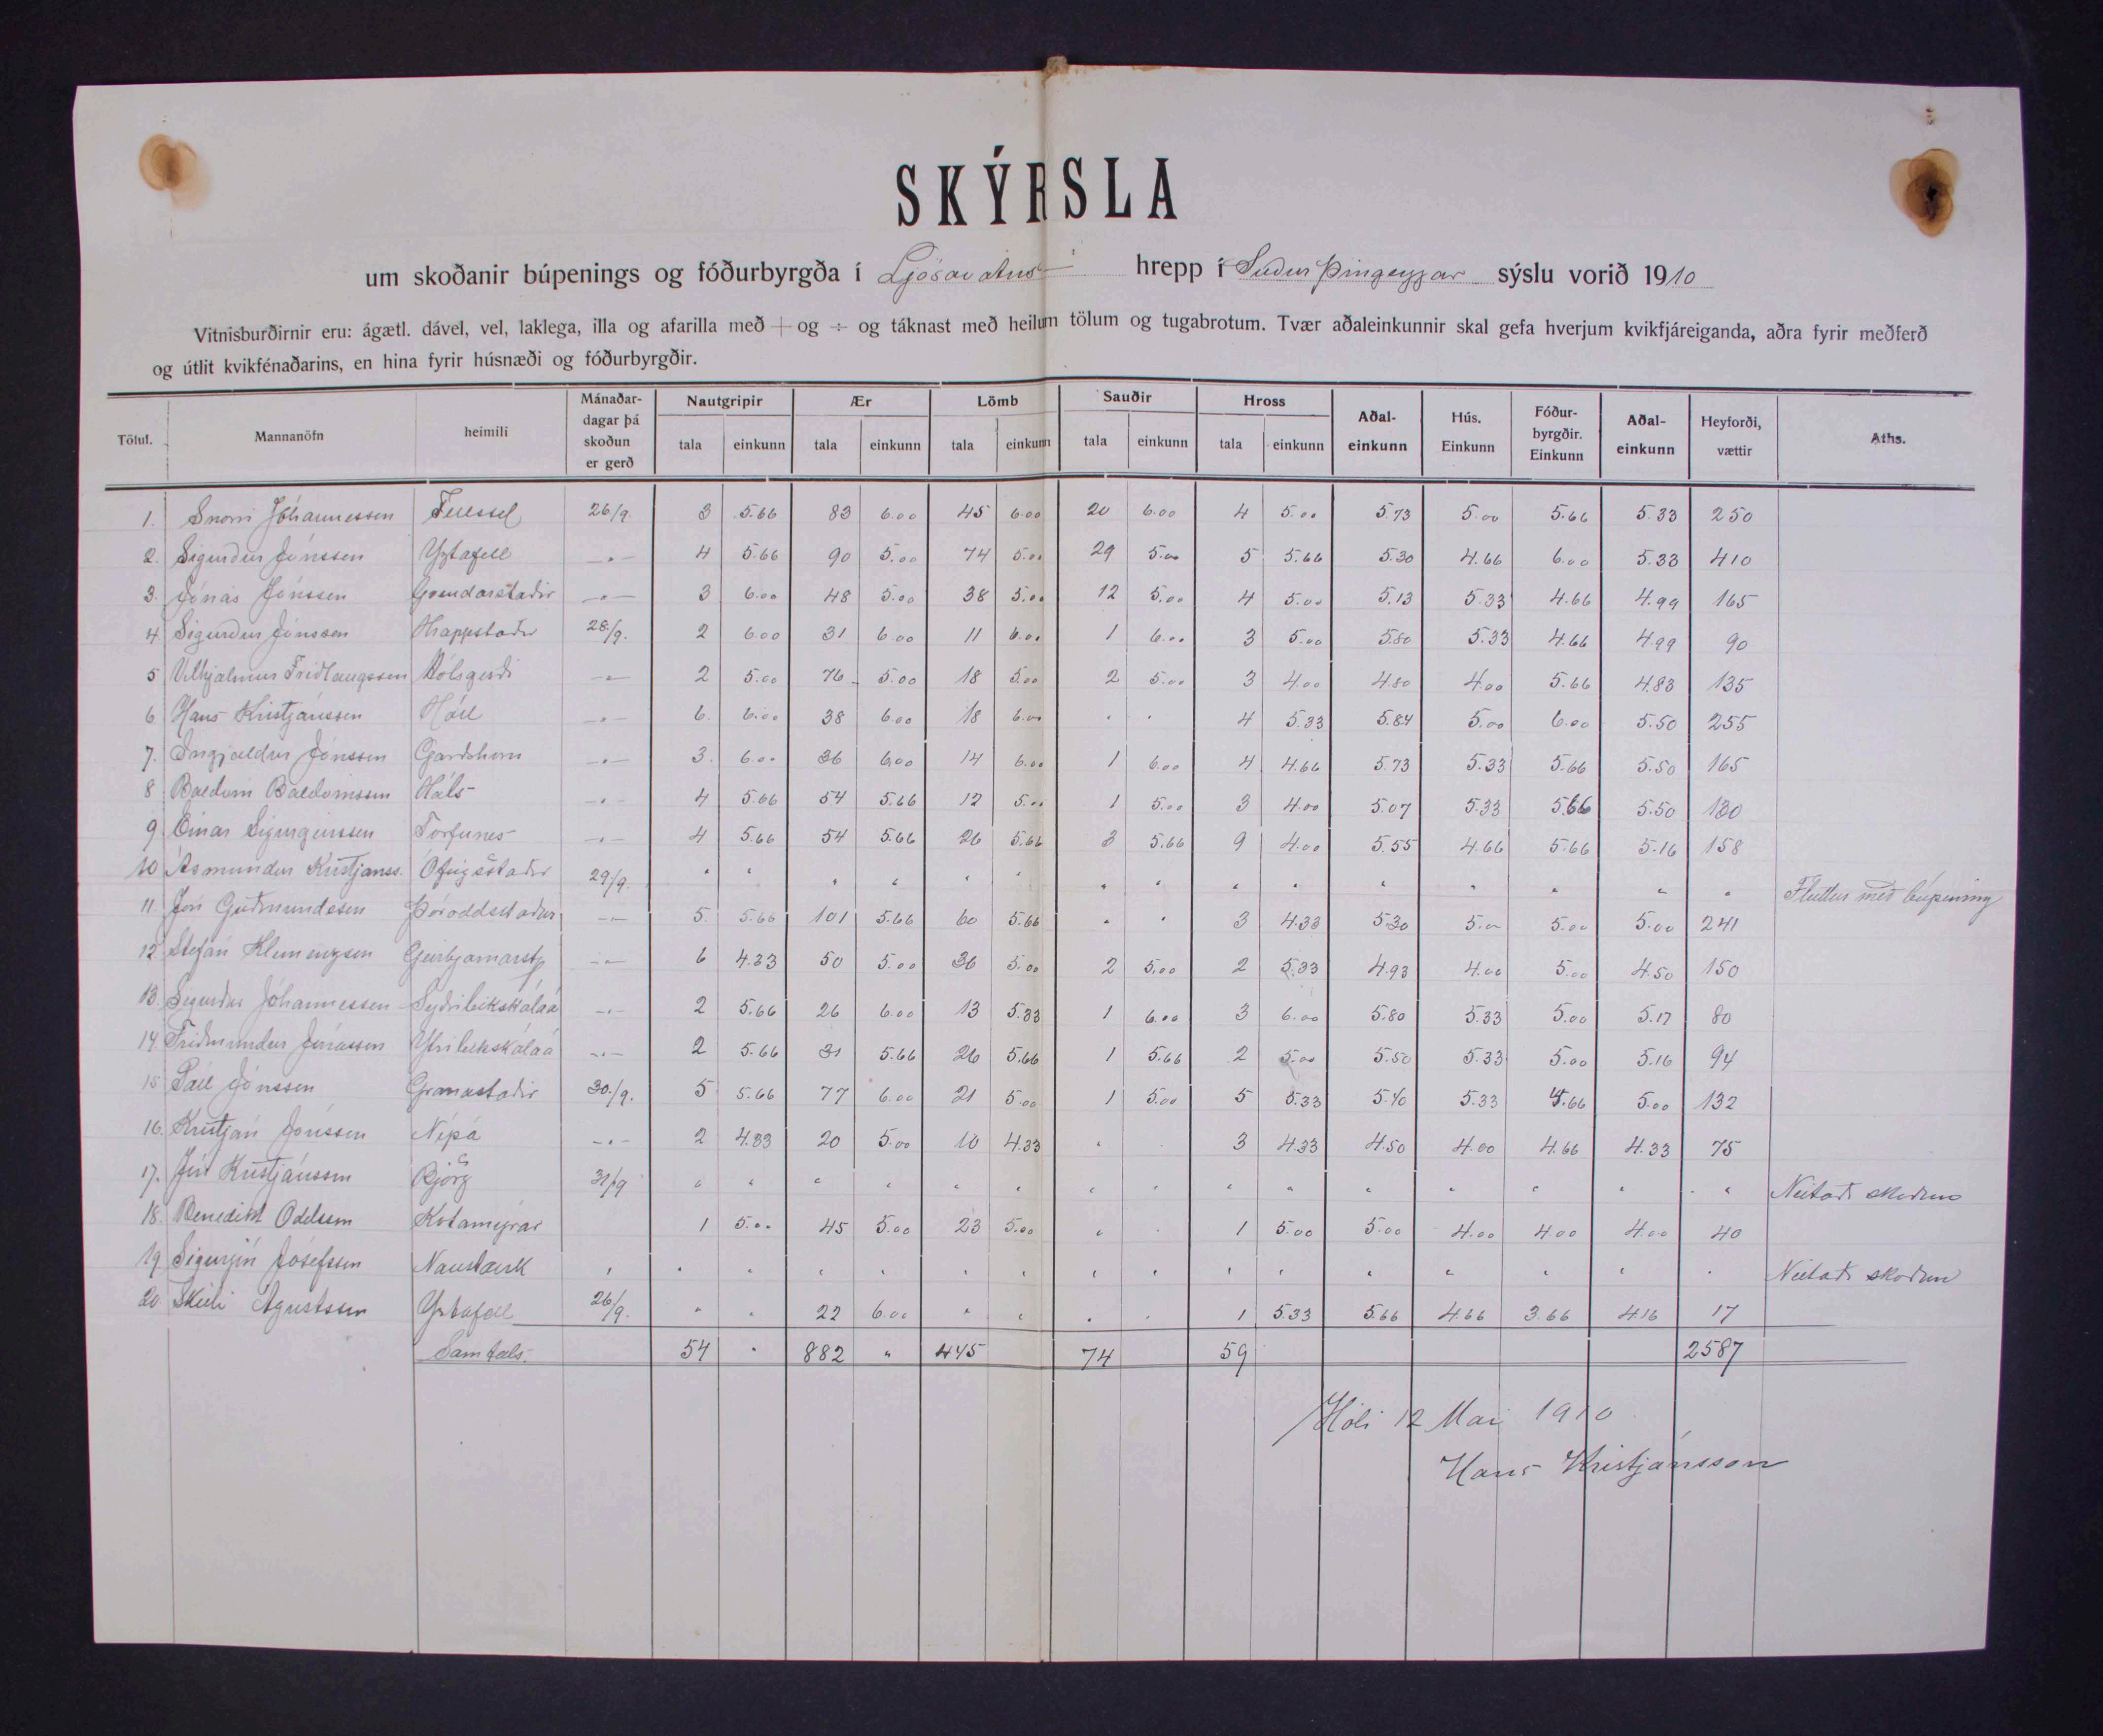 SKÝRSLA
um skoðanir búpenings og fóðurbyrgða í Ljósavatns- hrepp í Suður Þingeyjar sýslu vorið 1910
Vitnisburðirnir eru: ágætl. dável, vel, laklega, illa og afarilla með + og ÷ og táknast með heilum tölum og tugabrotum. Tvær aðaleinkunnir skal gefa hverjum kvikfjáreiganda, aðra fyrir meðferð
og útlit kvikfénaðarins, en hina fyrir húsnæði og fóðurbyrgðir.
Tölul. Mannanöfn heimili Mánaðardagar þá skoðun er gerð Nautgripir tala einkunn Ær tala einkunn Lömb tala einkunn Sauðir tala einkunn Hross tala einkunn Aðal-einkunn Hús. Einkunn Fóður-byrgðir. Einkunn Aðal-einkunn Heyforði, vættir Aths.
1. Snorri Jóhannessen Fremsel 26/9. 3 5.66 83 6.00 45 6.00 20 6.00 4 5.00 5.73 5.00 5.66 5.33 250
2. Sigurdur Jónssen Yztafell -"- 4 5.66 90 5.00 74 5.00 29 5.00 5 5.66 5.30 4.66 6.00 5.33 410
3. Jónas Jónssen Gvendarstadir -"- 3 6.00 48 5.00 38 5.00 12 5.00 4 5.00 5.13 5.33 4.66 4.99 165
4 Sigurdur Jónssen Hrappstadir 28/9. 2 6.00 31 6.00 11 6.00 1 6.00 3 5.00 5.80 5.33 4.66 4.99 90
5 Vilhjalmur Fridlaugssen Hólsgerdi -"- 2 5.00 76 5.00 18 5.00 2 5.00 3 4.00 4.80 4.00 5.66 4.83 135
6 Hans Kristjánssen Hóll -"- 6. 6.00 38 6.00 18 6.00 " " 4 5.33 5.84 5.00 6.00 5.50 255
7. Ingjaldur Jónssen Gardshorn -"- 3. 6.00 36 6.00 14 6.00 1 6.00 4 4.66 5.73 5.33 5.66 5.50 165
8 Baldvin Baldvinssen Háls -"- 4 5.66 54 5.66 12 5.00 1 5.00 3 4.00 5.07 5.33 5.66 5.50 130
9 Einar Sigurgeirssen Torfunes -"- 4 5.66 54 5.66 26 5.66 3 5.66 9 4.00 5.55 4.66 5.66 5.16 158
10 Ásmundur Kristjanss. Ófeigsstadir 29/9. " " " " " " " " " " " " " " " Fluttur með búpening
11. Jón Guðmundssen Þóroddstadur -"- 5. 5.66 101 5.66 60 5.66 " " 3 4.33 5.30 5.00 5.00 5.00 241
12. Stefán Klemenzsen Geirbjarnarst. -"- 6 4.33 50 5.00 36 5.00 2 5.00 2 5.33 4.93 4.00 5.00 4.50 150
13. Sigurdur Jóhannessen Sydrileikskálaá -"- 2 5.66 26 6.00 13 5.33 1 6.00 3 6.00 5.80 5.33 5.00 5.17 80
14. Fridmundur Jónassen Ytrileikskálaá -"- 2 5.66 31 5.66 26 5.66 1 5.66 2 5.00 5.50 5.33 5.00 5.16 94
15 Páll Jónssen Granastadir 30./9. 5 5.66 77 6.00 21 5.00 1 5.00 5 5.33 5.40 5.33 4.66 5.00 132
16. Kristján Jónssen Nípá -"- 2 4.33 20 5.00 10 4.33 " 3 4.33 4.50 4.00 4.66 4.33 75
17. Jón Kristjánssen Björg 31/9 " " " " " " " " " " " " " " " Neitaði skodun
18. Benedikt Odelssen Kotamýrar 1 5.00 45 5.00 23 5.00 " " 1 5.00 5.00 4.00 4.00 4.00 40
19. Sigurjón Jósefssen Naustavík " " " " " " " " " " " " " " " " Neitaði skodun
20. Skúli Ágústssen Yztafell 26/9. " " 22 6.00 " " " " 1 5.33 5.66 4.66 3.66 4.16 17
Samtals. 54 " 882 " 445 74 59 2587
Hóli 12 Mai 1910
Hans Kristjánsson